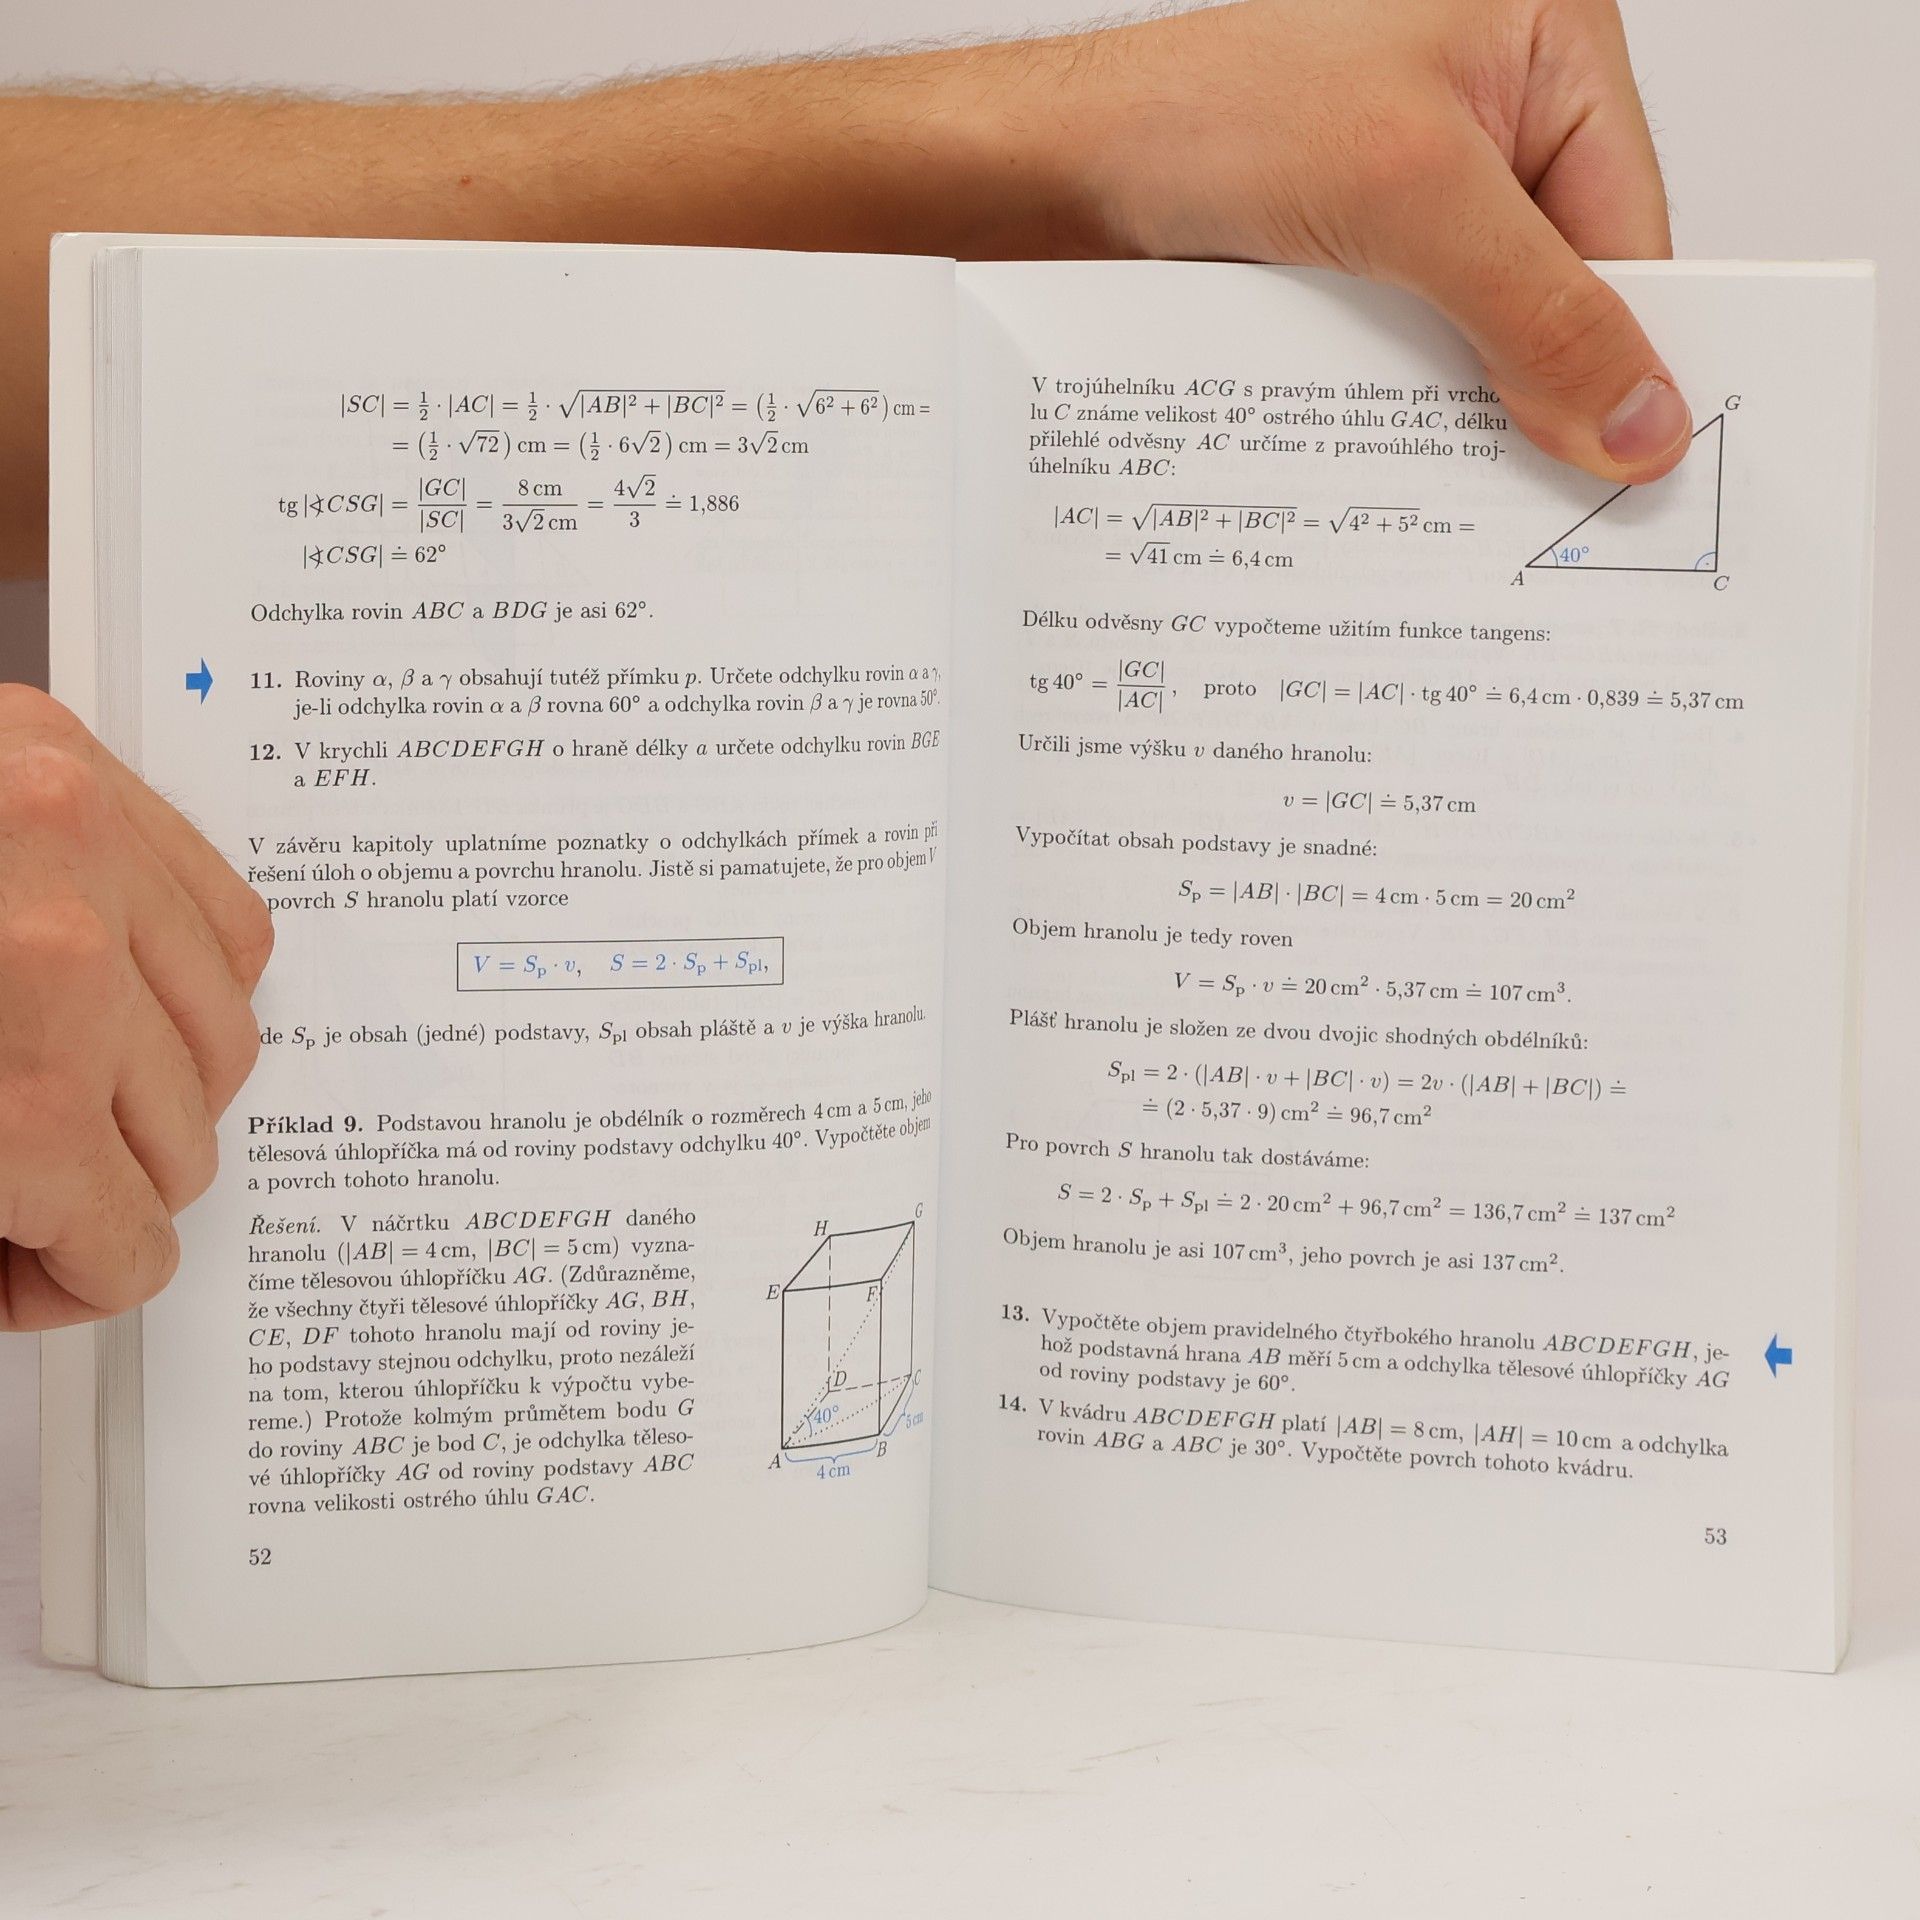 |SC| = 1/2 · |AC| = 1/2 · √(|AB|² + |BC|²) = (1/2 · √(6² + 6²)) cm =
= (1/2 · √72) cm = (1/2 · 6√2) cm = 3√2 cm
tg |∢CSG| = |GC|/|SC| = 8 cm/(3√2 cm) = 4√2/3 ≐ 1,886
|∢CSG| ≐ 62°
Odchylka rovin ABC a BDG je asi 62°.
11. Roviny α, β a γ obsahují tutéž přímku p. Určete odchylku rovin α a γ,
je-li odchylka rovin α a β rovna 60° a odchylka rovin β a γ je rovna 50°.
12. V krychli ABCDEFGH o hraně délky a určete odchylku rovin BGE
a EFH.
V závěru kapitoly uplatníme poznatky o odchylkách přímek a rovin při
řešení úloh o objemu a povrchu hranolu. Jistě si pamatujete, že pro objem V
povrch S hranolu platí vzorce
V = Sp · v, S = 2 · Sp + Spl,
de Sp je obsah (jedné) podstavy, Spl obsah pláště a v je výška hranolu.
Příklad 9. Podstavou hranolu je obdélník o rozměrech 4 cm a 5 cm, jeho
tělesová úhlopříčka má od roviny podstavy odchylku 40°. Vypočtěte objem
a povrch tohoto hranolu.
Řešení. V náčrtku ABCDEFGH daného
hranolu (|AB| = 4 cm, |BC| = 5 cm) vyzna-
číme tělesovou úhlopříčku AG. (Zdůrazněme,
že všechny čtyři tělesové úhlopříčky AG, BH,
CE, DF tohoto hranolu mají od roviny je-
ho podstavy stejnou odchylku, proto nezáleží
na tom, kterou úhlopříčku k výpočtu vybe-
reme.) Protože kolmým průmětem bodu G
do roviny ABC je bod C, je odchylka těleso-
vé úhlopříčky AG od roviny podstavy ABC
rovna velikosti ostrého úhlu GAC.
H
G
E
F
D
C
40°
5 cm
A
B
4 cm
52
V trojúhelníku ACG s pravým úhlem při vrcho
lu C známe velikost 40° ostrého úhlu GAC, délku
přilehlé odvěsny AC určíme z pravoúhlého troj-
úhelníku ABC:
|AC| = √(|AB|² + |BC|²) = √(4² + 5²) cm =
= √41 cm ≐ 6,4 cm
G
40°
A
C
Délku odvěsny GC vypočteme užitím funkce tangens:
tg 40° = |GC|/|AC|, proto |GC| = |AC| · tg 40° ≐ 6,4 cm · 0,839 ≐ 5,37 cm
Určili jsme výšku v daného hranolu:
v = |GC| ≐ 5,37 cm
Vypočítat obsah podstavy je snadné:
Sp = |AB| · |BC| = 4 cm · 5 cm = 20 cm²
Objem hranolu je tedy roven
V = Sp · v ≐ 20 cm² · 5,37 cm ≐ 107 cm³.
Plášť hranolu je složen ze dvou dvojic shodných obdélníků:
Spl = 2 · (|AB| · v + |BC| · v) = 2v · (|AB| + |BC|) ≐
≐ (2 · 5,37 · 9) cm² ≐ 96,7 cm²
Pro povrch S hranolu tak dostáváme:
S = 2 · Sp + Spl ≐ 2 · 20 cm² + 96,7 cm² = 136,7 cm² ≐ 137 cm²
Objem hranolu je asi 107 cm³, jeho povrch je asi 137 cm².
13. Vypočtěte objem pravidelného čtyřbokého hranolu ABCDEFGH, je-
hož podstavná hrana AB měří 5 cm a odchylka tělesové úhlopříčky AG
od roviny podstavy je 60°.
14. V kvádru ABCDEFGH platí |AB| = 8 cm, |AH| = 10 cm a odchylka
rovin ABG a ABC je 30°. Vypočtěte povrch tohoto kvádru.
53